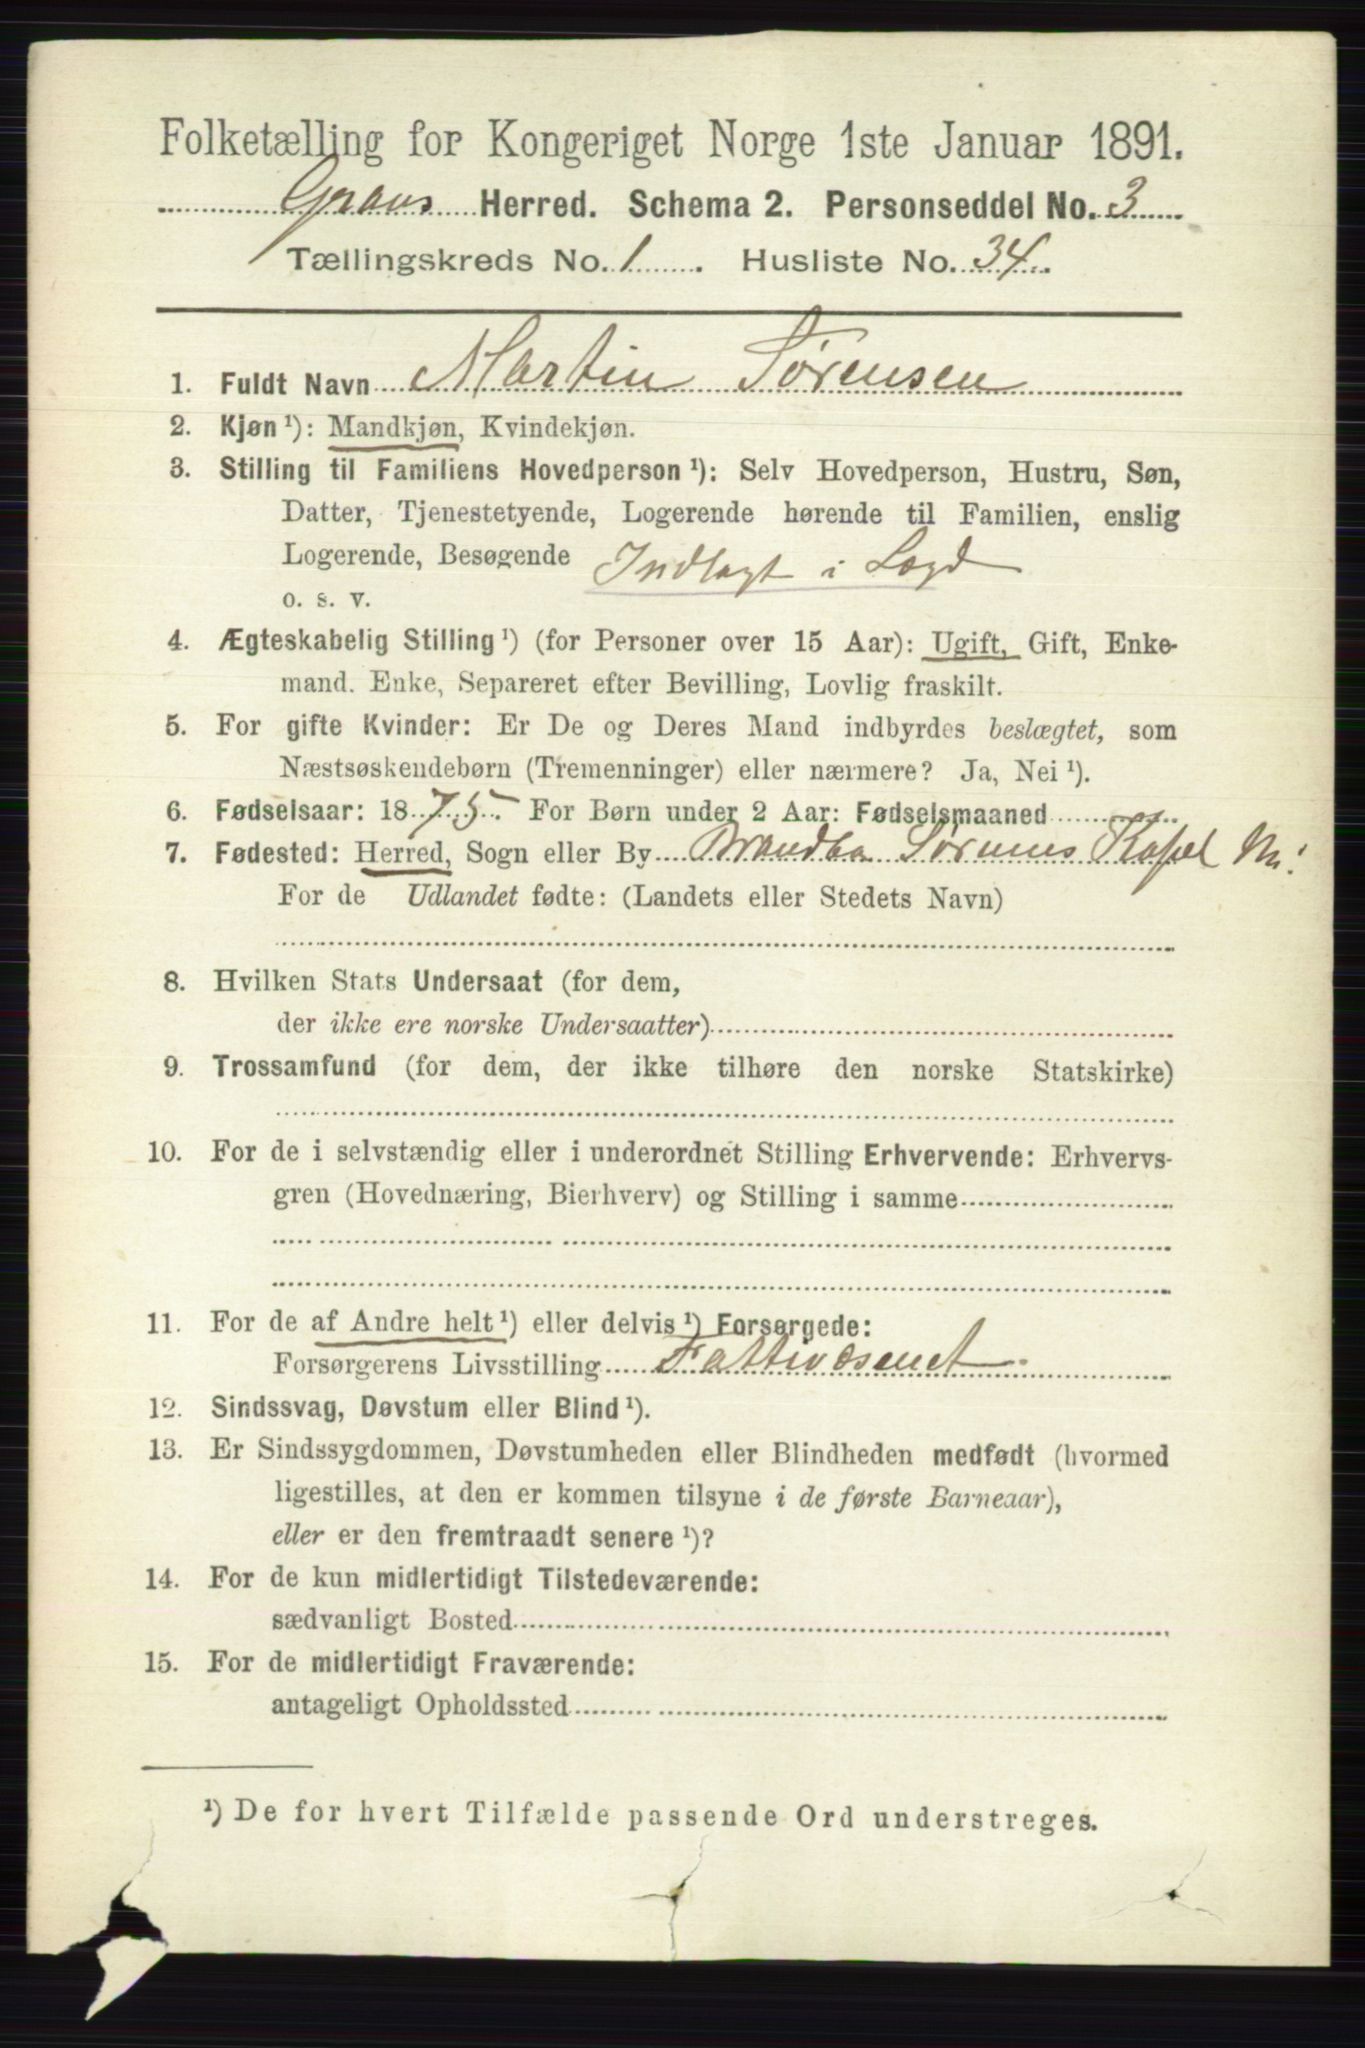 Folketælling for Kongeriget Norge 1ste Januar 1891.
Grans Herred. Schema 2. Personseddel No. 3
Tællingskreds No. 1. Husliste No. 34.
1. Fuldt Navn Martin Sørensen
2. Kjøn ¹): Mandkjøn, Kvindekjøn.
3. Stilling til Familiens Hovedperson ¹): Selv Hovedperson, Hustru, Søn,
Datter, Tjenestetyende, Logerende hørende til Familien, enslig
Logerende, Besøgende Indlagt i Lægd
o. s. v.
4. Ægteskabelig Stilling ¹) (for Personer over 15 Aar): Ugift, Gift, Enke-
mand. Enke, Separeret efter Bevilling, Lovlig fraskilt.
5. For gifte Kvinder: Er De og Deres Mand indbyrdes beslægtet, som
Næstsøskendebørn (Tremenninger) eller nærmere? Ja, Nei ¹).
6. Fødselsaar: 1875. For Børn under 2 Aar: Fødselsmaaned
7. Fødested: Herred, Sogn eller By Brandbu Sørums Kapel
For de Udlandet fødte: (Landets eller Stedets Navn)
8. Hvilken Stats Undersaat (for dem,
der ikke ere norske Undersaatter)
9. Trossamfund (for dem, der ikke tilhøre den norske Statskirke)
10. For de i selvstændig eller i underordnet Stilling Erhvervende: Erhvervs-
gren (Hovednæring, Bierhverv) og Stilling i samme
11. For de af Andre helt ¹) eller delvis ¹) Forsørgede:
Forsørgerens Livsstilling Fattivæsenet.
12. Sindssvag, Døvstum eller Blind ¹).
13. Er Sindssygdommen, Døvstumheden eller Blindheden medfødt (hvormed
ligestilles, at den er kommen tilsyne i de første Barneaar),
eller er den fremtraadt senere ¹)?
14. For de kun midlertidigt Tilstedeværende:
sædvanligt Bosted
15. For de midlertidigt Fraværende:
antageligt Opholdssted
¹) De for hvert Tilfælde passende Ord understreges.